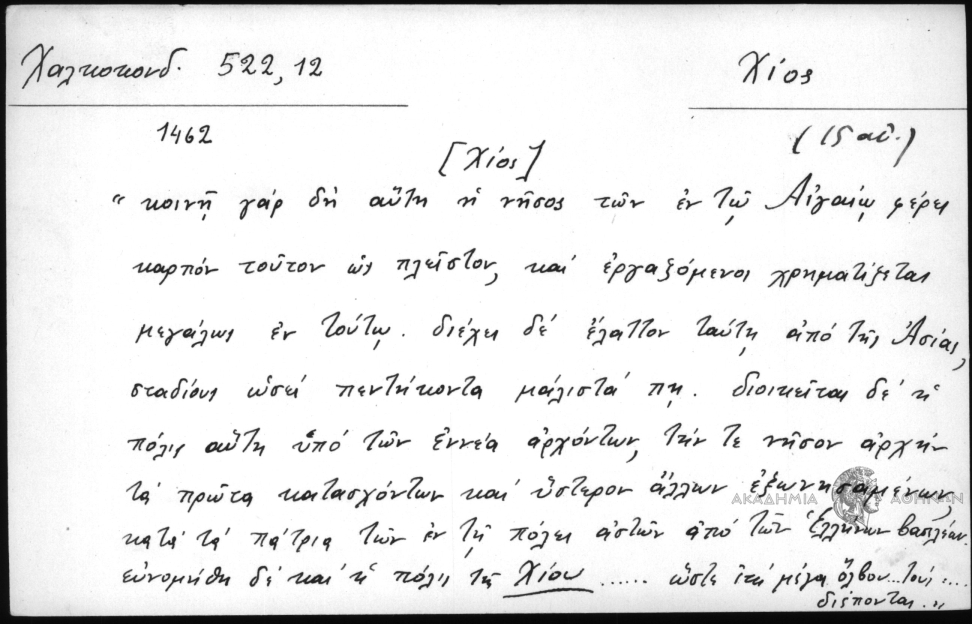 Χαλκοκονδ. 522,12
Χίος
1462
(15 αἰ.)
[Χίος]
“ κοινῇ γάρ δή αὕτη ἡ νῆσος τῶν ἐν τῷ Αἰγαίῳ φέρει
καρπόν τοῦτον ὡς πλεῖστον, καί ἐργαζόμενοι χρηματίζεται
μεγάλως ἐν τούτῳ. διέχει δέ ἔλαττον ταύτῃ ἀπό τῆς Ἀσίας,
σταδίους ὡσεί πεντήκοντα μάλιστά πῃ. διοικεῖται δέ ἡ
πόλις αὕτη ὑπό τῶν ἐννέα ἀρχόντων, τήν τε νῆσον ἀρχήν
τά πρῶτα κατασχόντων καί ὕστερον ἄλλων ἐξωνησαμένων,
κατά τά πάτρια τῶν ἐν τῇ πόλει ἀστῶν ἀπό τῶν Ἑλλήνων βασιλέων.
εὐνομήθη δέ καί ἡ πόλις τῆς Χίου ...... ὥστε ἐπί μέγα ὄλβου...τούς....
διέποντας.„
ΑΚΑΔΗΜΙΑ ΑΘΗΝΩΝ